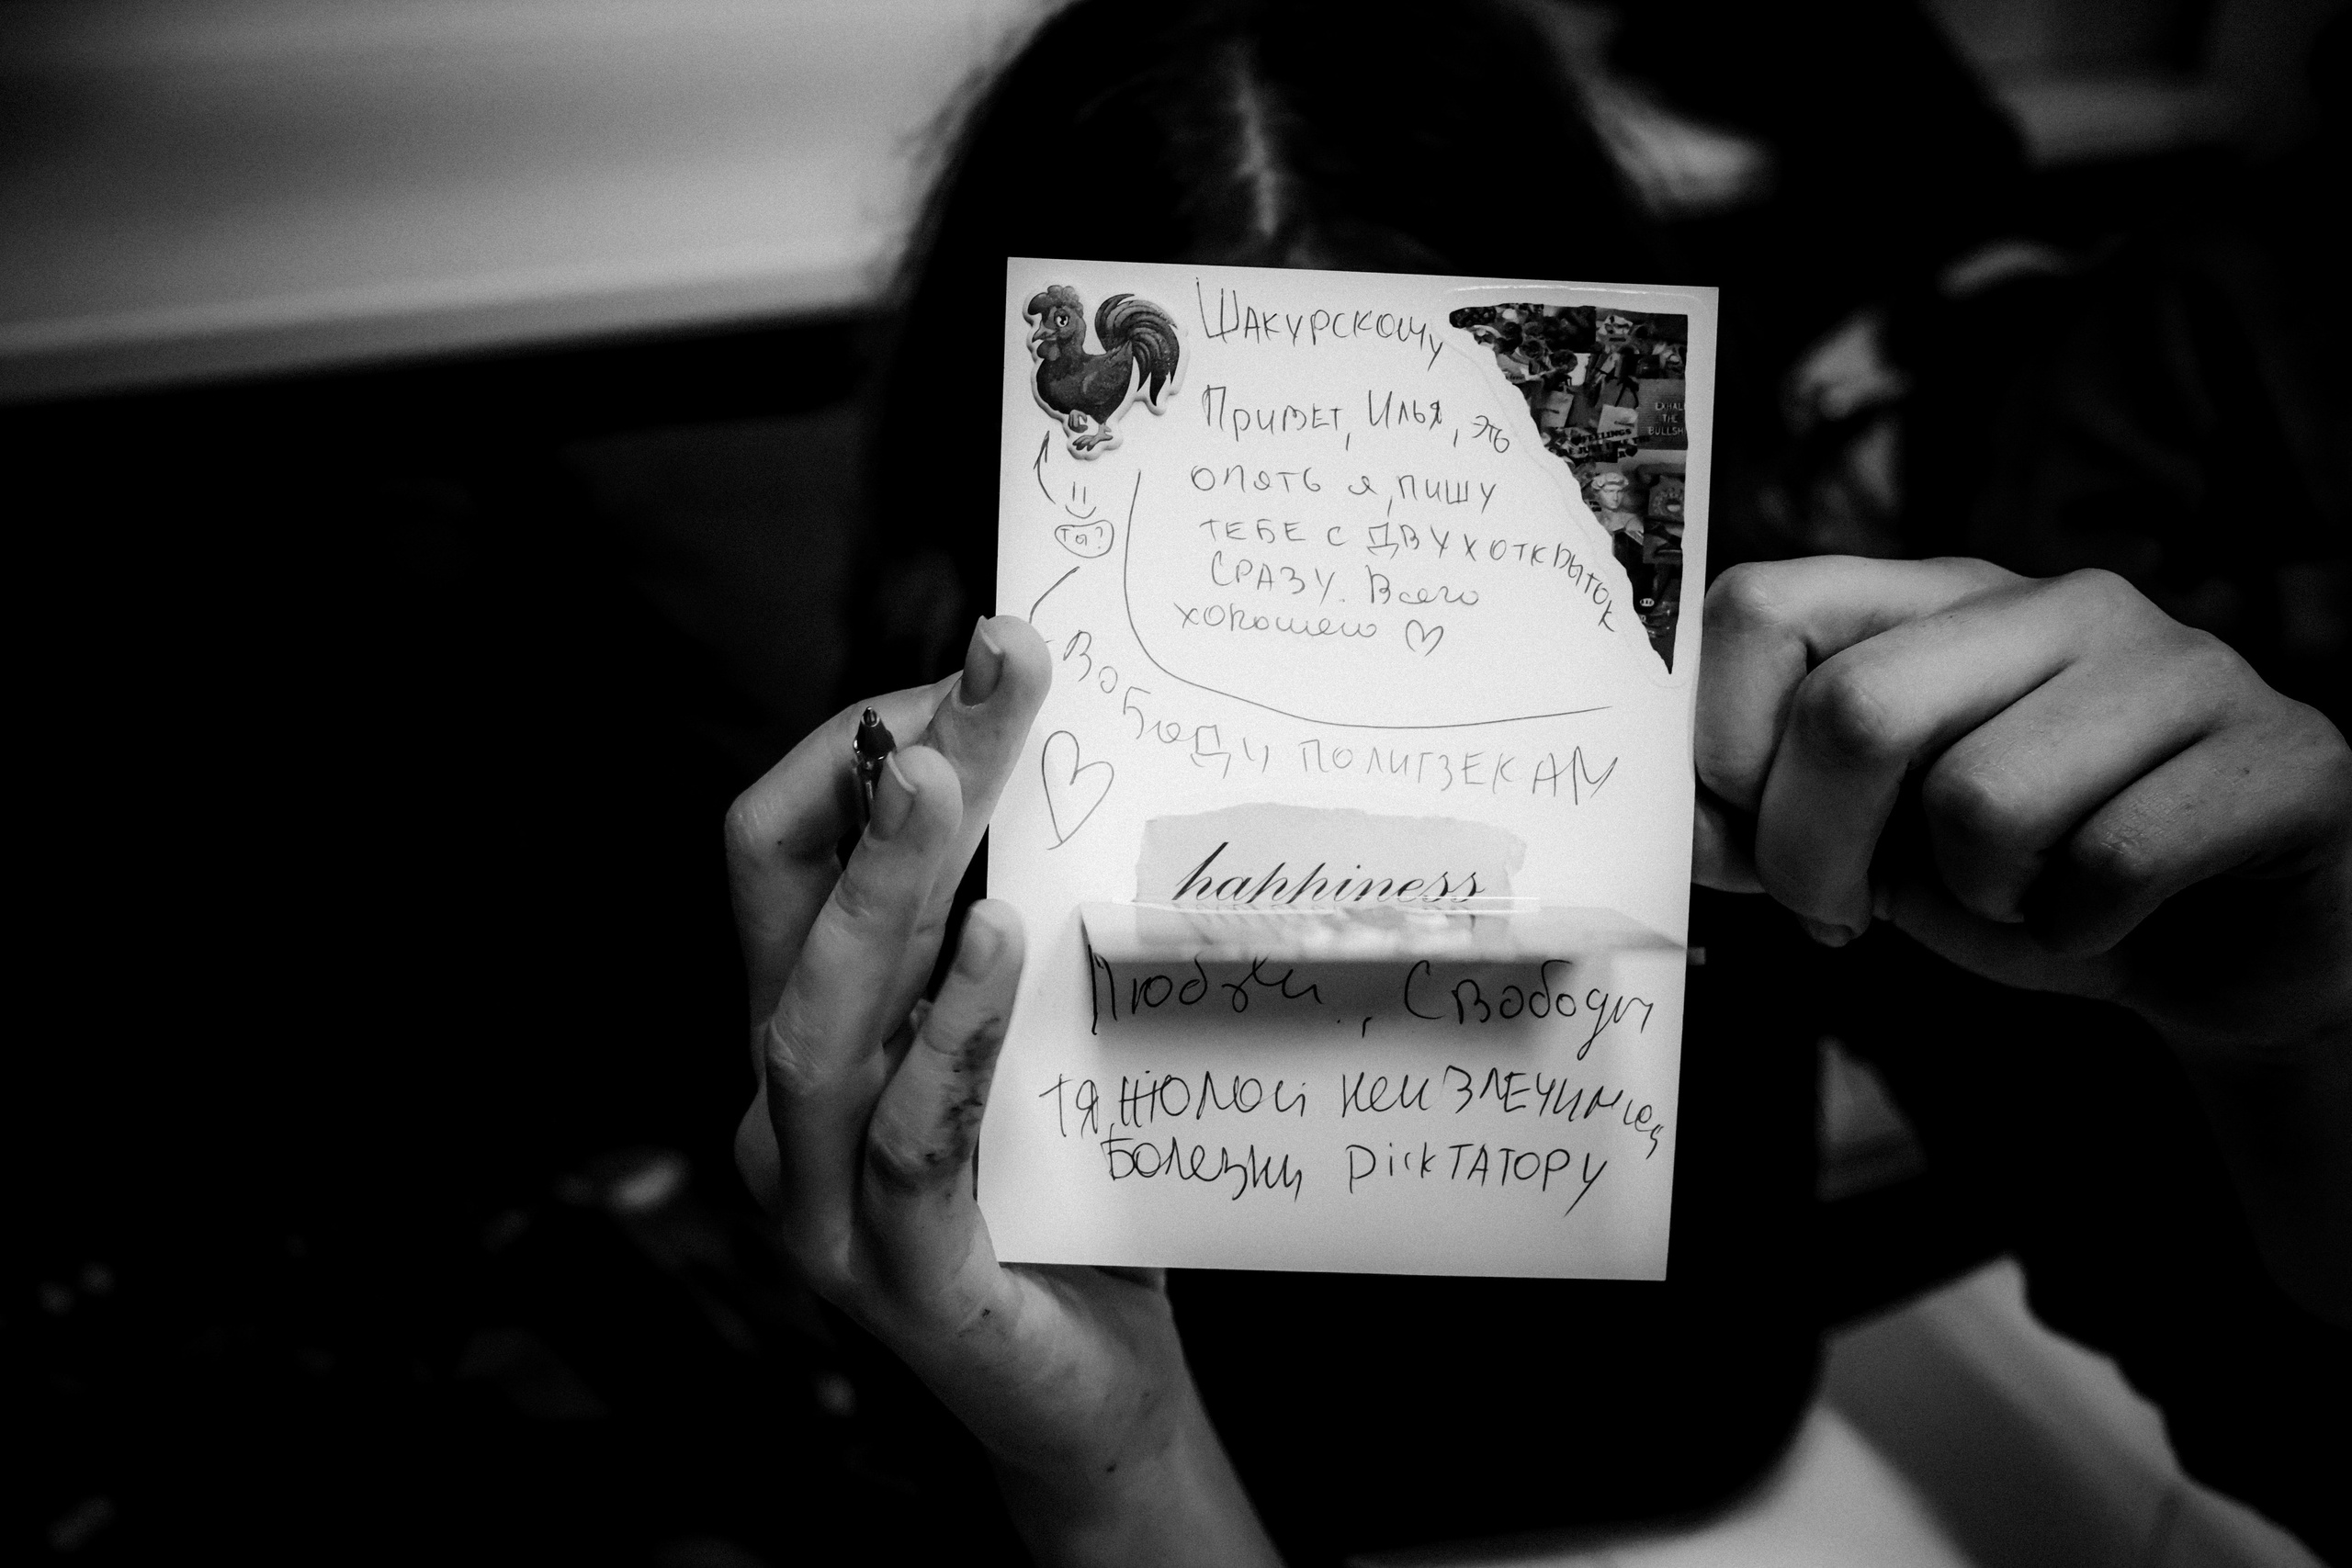 Шакурскому
Привет, Илья, это
опять я, пишу
тебе с двух открыток
сразу. Всего
хорошего ♡
ты?
Свободу политзекам
happiness
Любви, Свободы
тяжолой неизлечимой
болезни диктатору
EXHALE
THE
BULLSH
FEELINGS